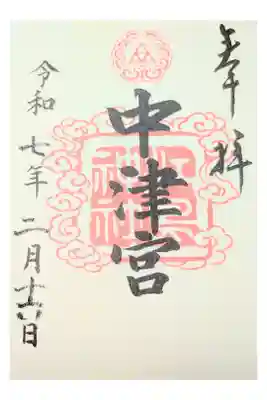 奉拝
中津宮
令和七年二月十六日